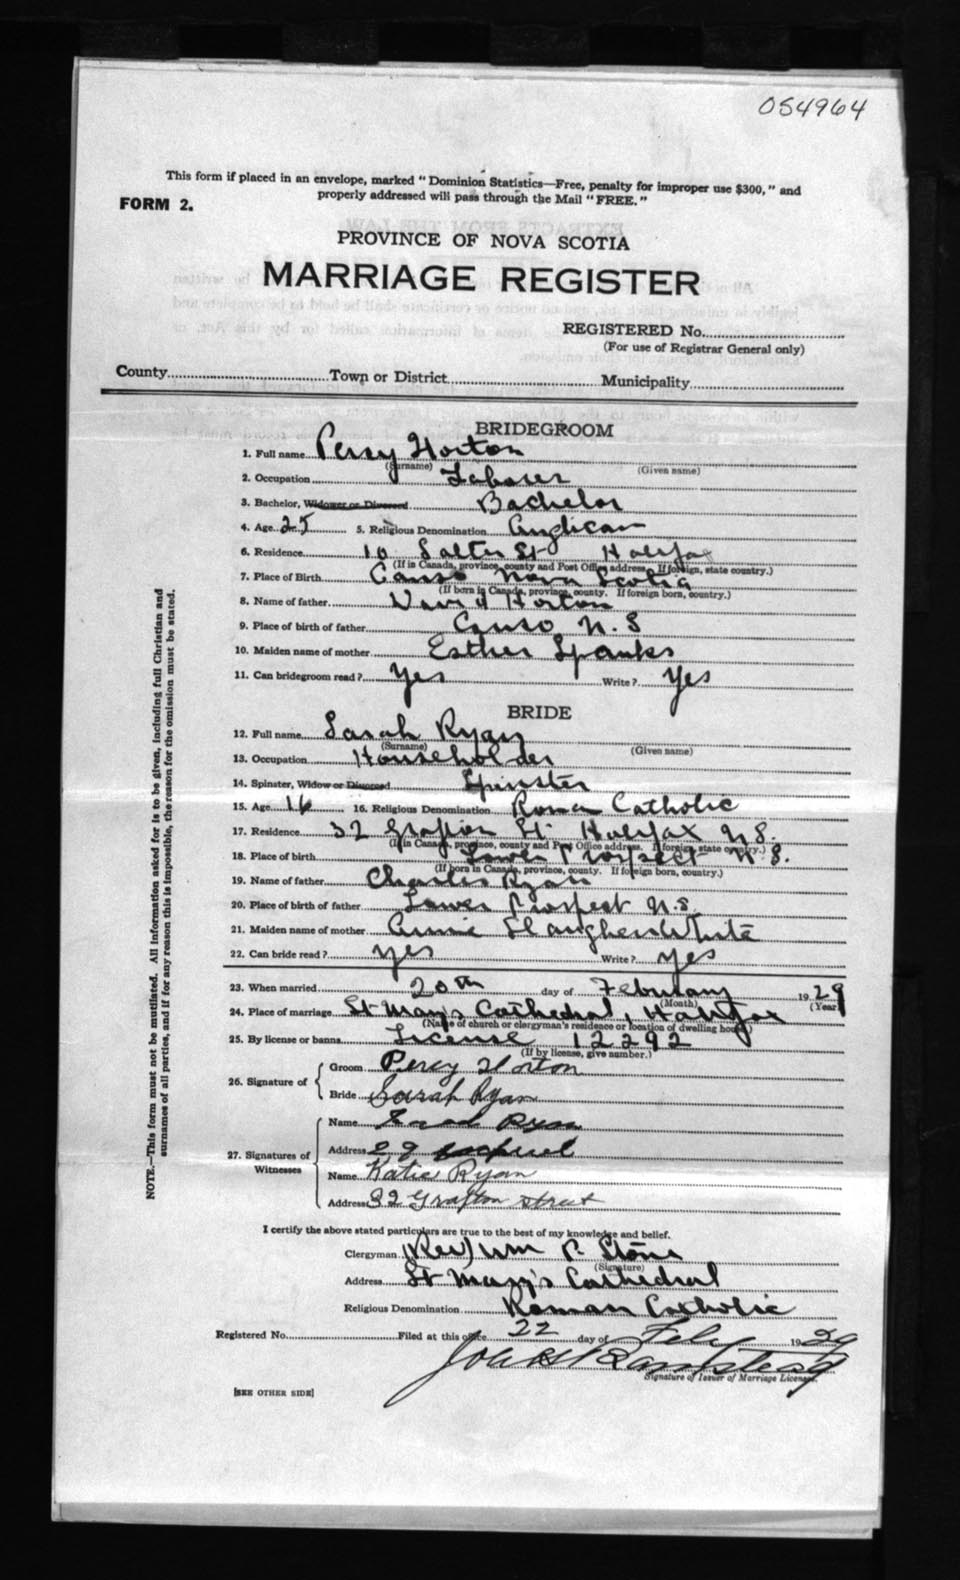 054964
This form if placed in an envelope, marked "Dominion Statistics—Free, penalty for improper use $300," and
properly addressed will pass through the Mail "FREE."
FORM 2.
PROVINCE OF NOVA SCOTIA
MARRIAGE REGISTER
REGISTERED No.
(For use of Registrar General only)
County Town or District Municipality
BRIDEGROOM
1. Full name Percy Horton
(Surname) (Given name)
2. Occupation Laborer
3. Bachelor, Widower or Divorced Bachelor
4. Age 25 5. Religious Denomination Anglican
6. Residence 10 Salter St Halifax
(If in Canada, province, county and Post Office address. If foreign, state country.)
7. Place of Birth Canso Nova Scotia
(If born in Canada, province, county. If foreign born, country.)
8. Name of father David Horton
9. Place of birth of father Canso N.S
10. Maiden name of mother Esther Spanks
11. Can bridegroom read? Yes Write? Yes
BRIDE
12. Full name Sarah Ryan
(Surname) (Given name)
13. Occupation Householder
14. Spinster, Widow or Divorced Spinster
15. Age 16 16. Religious Denomination Roman Catholic
17. Residence 32 Grafton St. Halifax N.S.
(If in Canada, province, county and Post Office address. If foreign, state country.)
18. Place of birth Lower Prospect N.S.
(If born in Canada, province, county. If foreign born, country.)
19. Name of father Charles Ryan
20. Place of birth of father Lower Prospect N.S.
21. Maiden name of mother Annie White
22. Can bride read? yes Write? yes
23. When married 20th day of February 1929
(Month) (Year)
24. Place of marriage St Mary's Cathedral, Halifax
(Name of church or clergyman's residence or location of dwelling house)
25. By license or banns License 12292
(If by license, give number.)
26. Signature of Groom Percy Horton
Bride Sarah Ryan
27. Signatures of Witnesses
Name Ryan
Address 29
Name Katie Ryan
Address 32 Grafton Street
I certify the above stated particulars are true to the best of my knowledge and belief.
Clergyman (Rev) Wm P. Stone
(Signature)
Address St Mary's Cathedral
Religious Denomination Roman Catholic
Registered No. Filed at this office 22 day of Feby 1929
Signature of Issuer of Marriage Licenses.
[SEE OTHER SIDE]
NOTE.—This form must not be mutilated. All information asked for is to be given, including full Christian and
surnames of all parties, and if for any reason this is impossible, the reason for the omission must be stated.